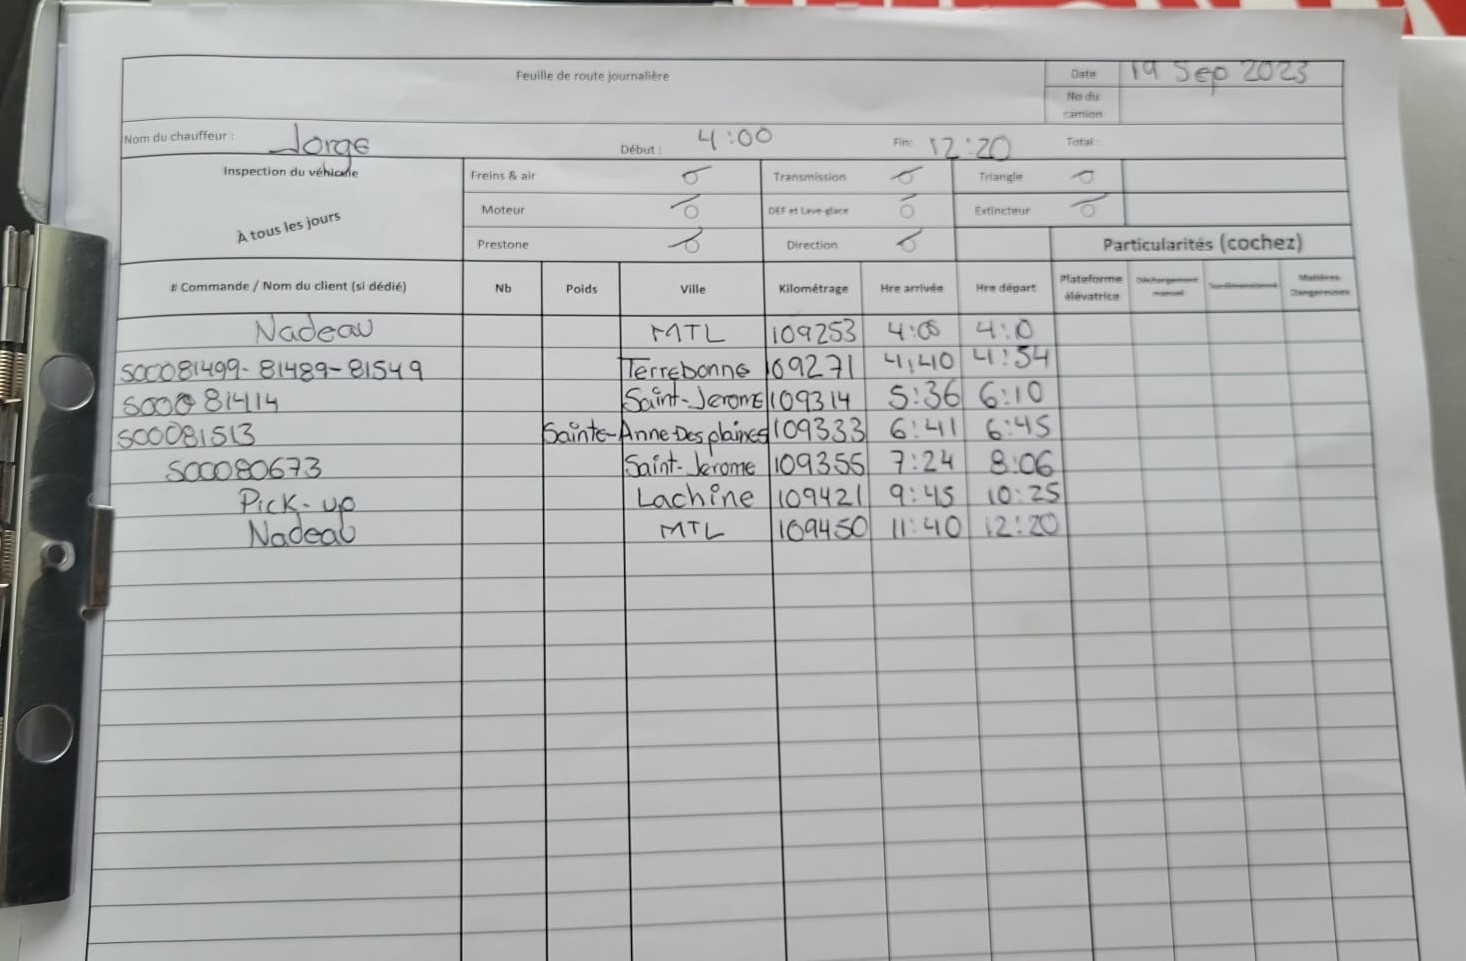 Feuille de route journalière
Date 19 Sep 2023
No du camion
Nom du chauffeur : Jorge Début : 4:00 Fin: 12:20 Total :
Inspection du véhicule Freins & air Transmission Triangle
À tous les jours Moteur DEF et Lave-glace Extincteur
Prestone Direction Particularités (cochez)
# Commande / Nom du client (si dédié) Nb Poids Ville Kilométrage Hre arrivée Hre départ Plateforme élévatrice Déchargement manuel Matières Dangereuses
Nadeau MTL 109253 4:00 4:10
S00081499-81489-81549 Terrebonne 109271 4:40 4:54
S00081414 Saint-Jerome 109314 5:36 6:10
S00081513 Sainte-Anne-Des plaines 109333 6:41 6:45
S00080673 Saint-Jerome 109355 7:24 8:06
Pick-up Lachine 109421 9:45 10:25
Nadeau MTL 109450 11:40 12:20